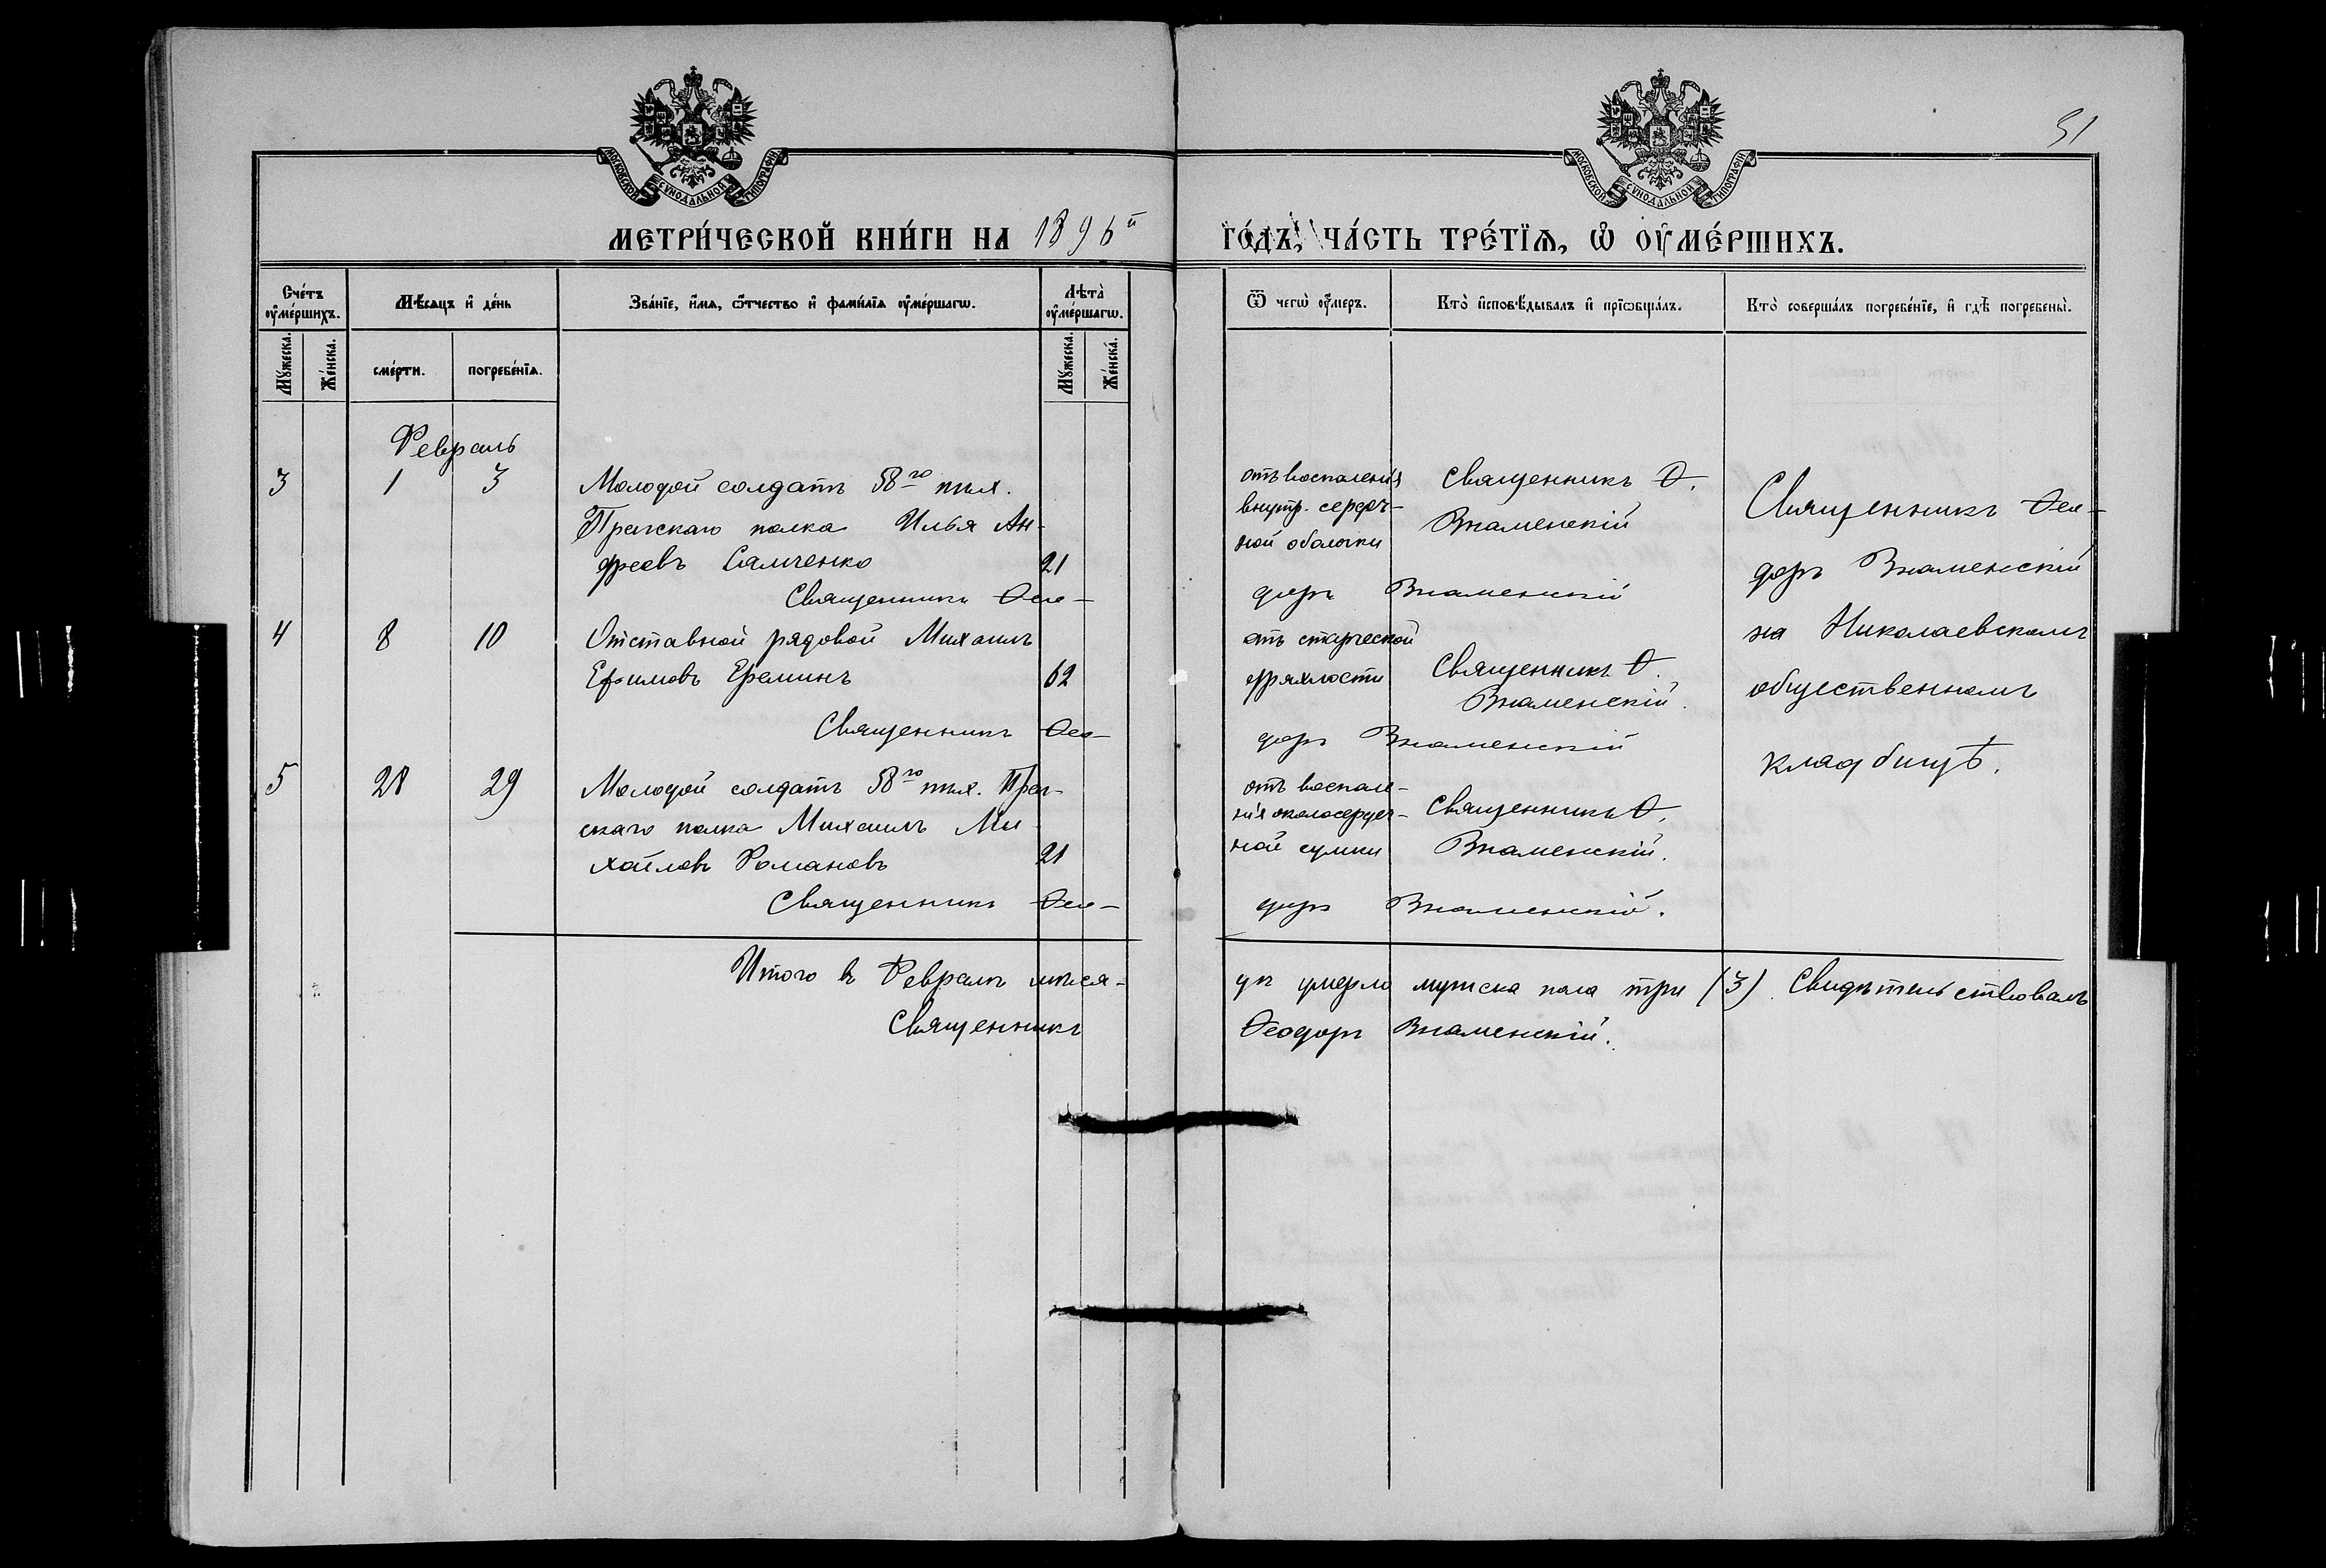 МОСКОВСКОЙ СѴНОДАЛЬНОЙ ТИПОГРАФІИ
МОСКОВСКОЙ СѴНОДАЛЬНОЙ ТИПОГРАФІИ
51
МЕТРИ́ЧЕСКОЙ КНИ́ГИ НА 1896й
ГО́ДЪ, ЧА́СТЬ ТРЕ́ТІѦ, Ѡ҆ ОУ҆МЕ́РШИХЪ.
Сче́тъ оу҆ме́ршихъ.
Мꙋ́жеска.
Же́нска.
Мѣ́сѧцъ и҆ де́нь
сме́рти.
погребе́нїѧ.
Зва́нїе, и҆́мѧ, ѻ҆́тчество и҆ фами́лїѧ оу҆ме́ршагѡ.
Лѣ́та оу҆ме́ршагѡ.
Мꙋ́жеска.
Же́нска.
Ѿ чегѡ̀ оу҆́меръ.
Кто̀ и҆сповѣ́дывалъ и҆ прїѡбща́лъ.
Кто̀ соверша́лъ погребе́нїе, и҆ гдѣ̀ погребены̀.
Февраль
3 1 3 Молодой солдатъ 58го пѣх.
Пражскаго полка Илья Ан-
дреевъ Самченко 21
Священникъ Ѳео-
отъ воспаленія
внутр. сердеч-
ной оболочки
Священникъ Ѳ.
Знаменскій
доръ Знаменскій
Священникъ Ѳео-
доръ Знаменскій
на Николаевскомъ
общественномъ
кладбищѣ.
4 8 10 Отставной рядовой Михаилъ
Ефимовъ Ереминъ 62
Священникъ Ѳео-
отъ старческой
дряхлости
Священникъ Ѳ.
Знаменскій.
доръ Знаменскій
5 28 29 Молодой солдатъ 58го пѣх. Праж-
скаго полка Михаилъ Ми-
хайловъ Романовъ 21
Священникъ Ѳео-
отъ воспале-
нія околосердеч-
ной сумки
Священникъ Ѳ.
Знаменскій.
доръ Знаменскій.
Итого въ Февралѣ мѣся-
цѣ умерло мужска пола три (3). Свидѣтельствовалъ
Священникъ
Ѳеодоръ Знаменскій.